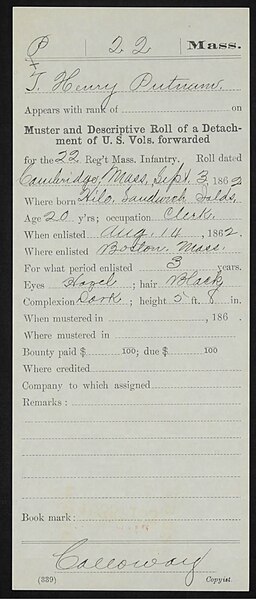 P | 22 | Mass.
T. Henry Putnam.
Appears with rank of on
Muster and Descriptive Roll of a Detach-
ment of U. S. Vols. forwarded
for the 22 Reg't Mass. Infantry. Roll dated
Cambridge, Mass, Sept. 3, 1862
Where born Hilo, Sandwich Islds,
Age 20 y'rs; occupation Clerk.
When enlisted Aug. 14, 1862.
Where enlisted Boston, Mass.
For what period enlisted 3 years.
Eyes Hazel; hair Black
Complexion Dark; height 5 ft. 8 in.
When mustered in , 186 .
Where mustered in
Bounty paid $ 100; due $ 100
Where credited
Company to which assigned
Remarks :
Book mark :
Calloway
(339) Copyist